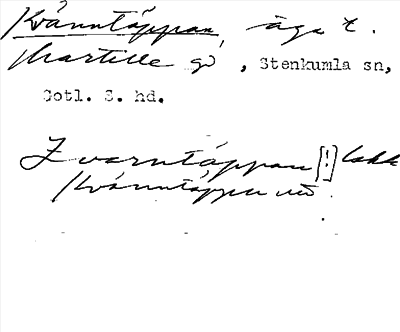 Kvänntäppan, äga t.
Martille gd, Stenkumla sn,
Gotl. S. hd.
Zvarntäppan [!] lakk
Kvänntäppen